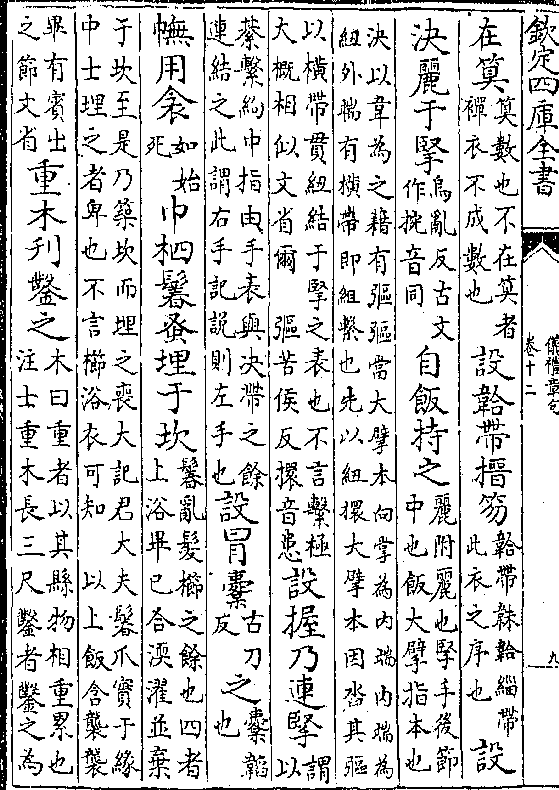 欽定四庫全書
儀禮章句
卷十二
九
在筭
筭數也不在筭者
襌衣不成數也
設韐帶搢笏
韐帶韎韐緇帶
此衣之序也
設
決麗于掔
烏亂反古文
作捥音同
自飯持之
麗附麗也掔手後節
中也飯大擘指本也
決以韋為之藉有彄彄當大擘本向掌為內端內端為
紐外端有橫帶即組繫也先以紐擐大擘本因沓其彄
以橫帶貫紐結于掔之表也不言繫極
大概相似文省爾 彄苦侯反擐音患
設握乃連掔
謂
以
綦繫鉤中指由手表與決帶之餘
連結之此謂右手記說則左手也
設冒櫜
古刀
反
之
櫜韜
也
幠用衾
如始
死
巾柶鬠蚤埋于坎
鬠亂髮櫛之餘也四者
上浴畢已合渜濯並棄
于坎至是乃築坎而埋之喪大記君大夫鬠爪實于綠
中士埋之者卑也不言櫛浴衣可知 以上飯含襲襲
畢有賓士
之節文省
重木刊鑿之
木曰重者以其縣物相重累也
注士重木長三尺鑿者鑿之為